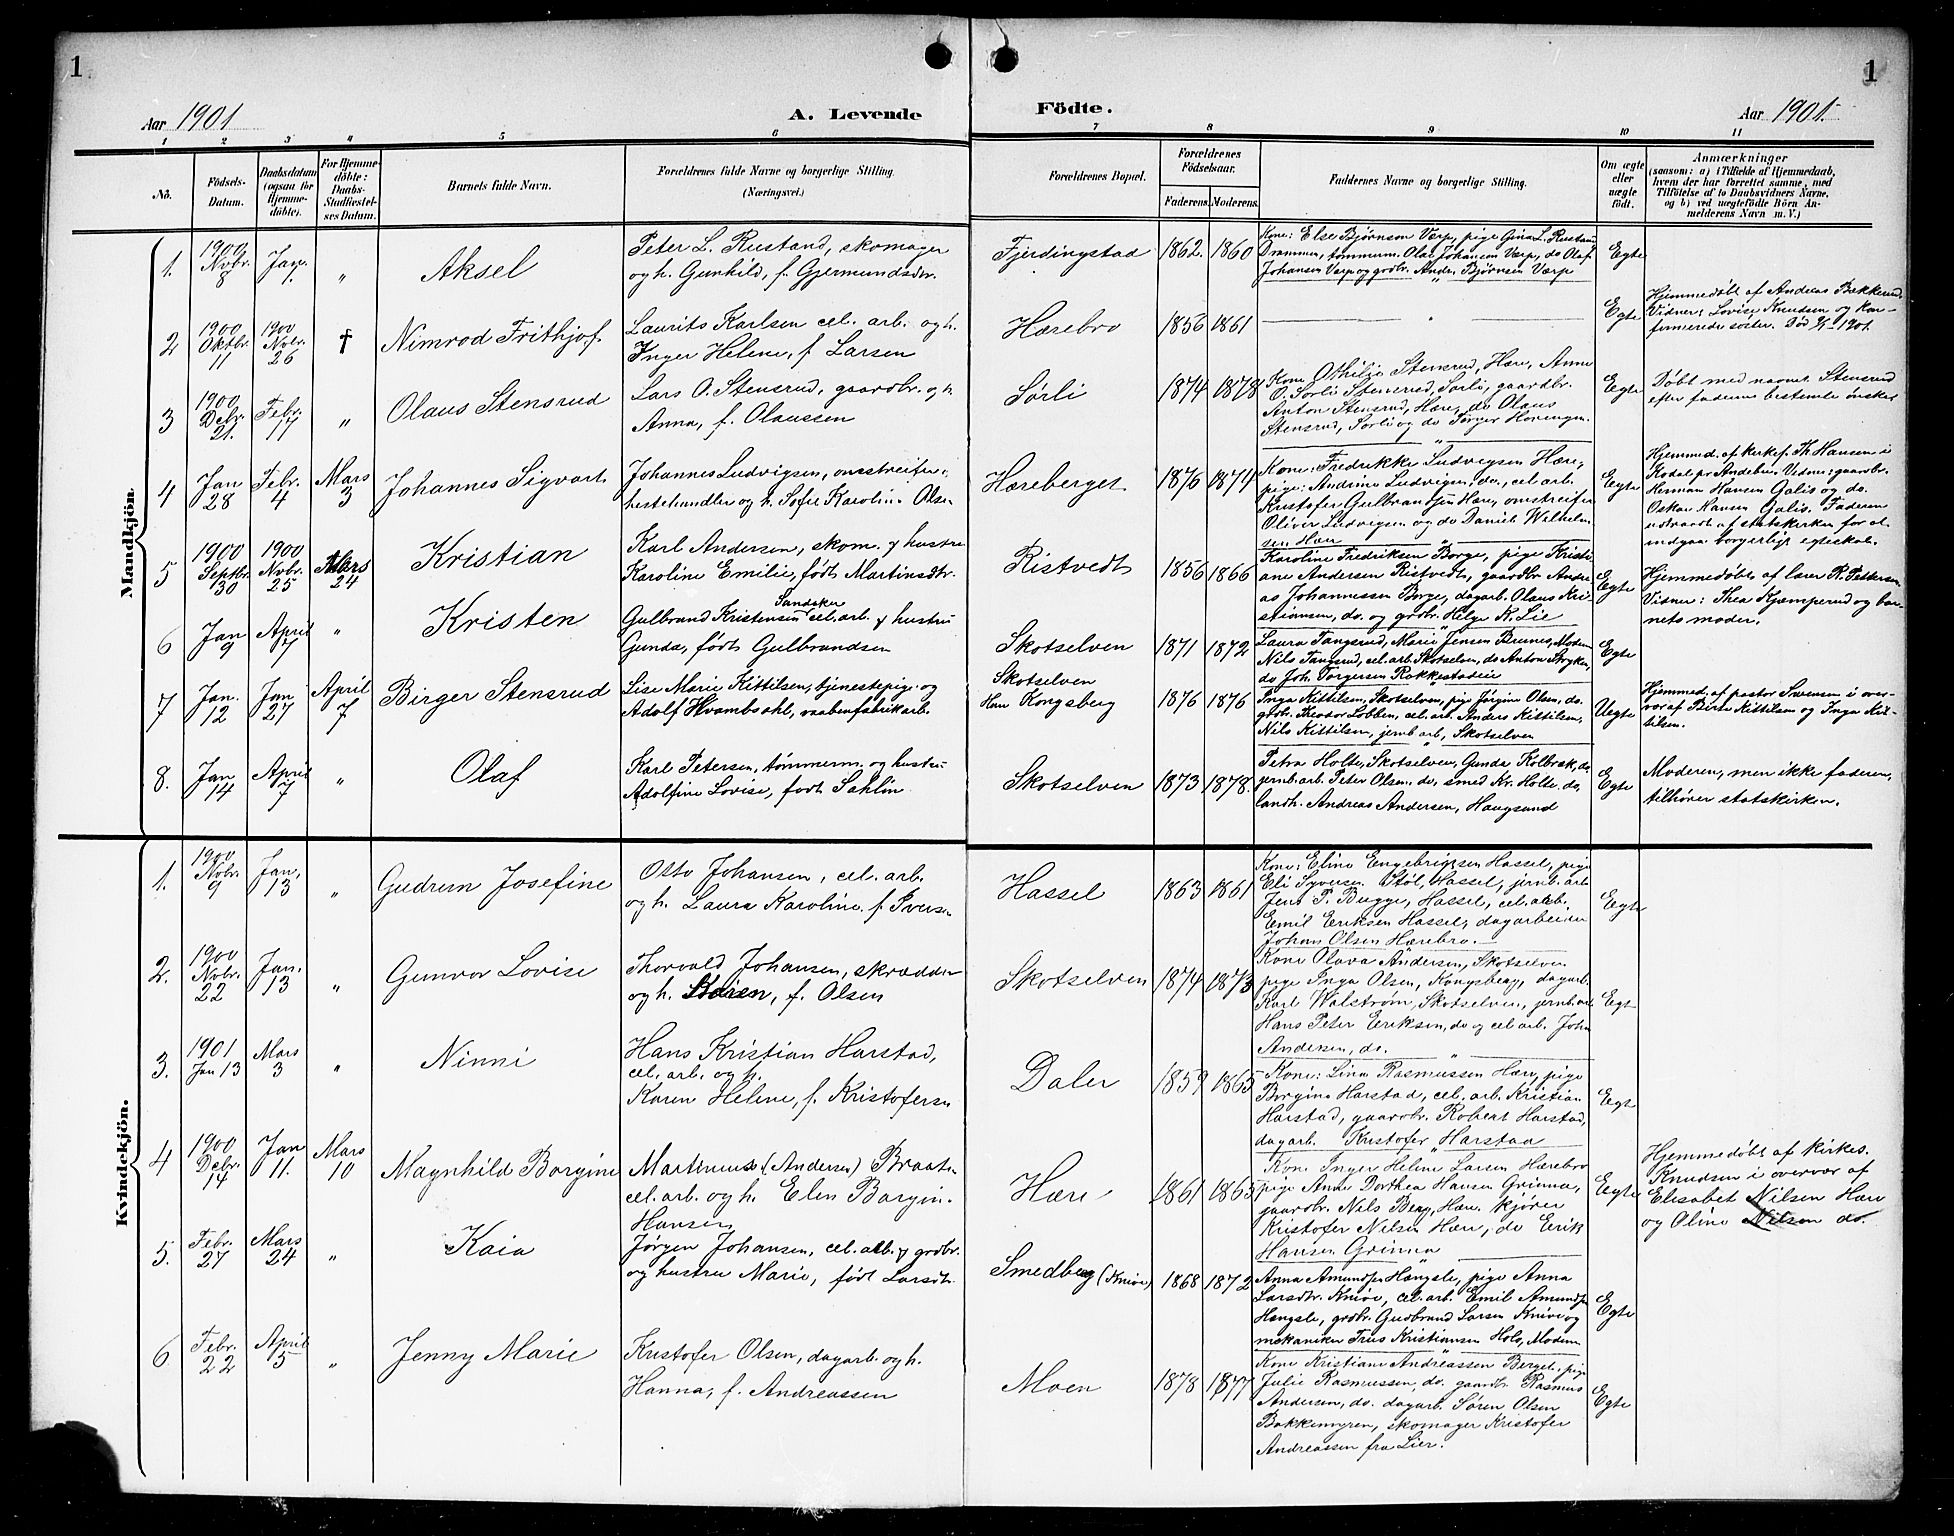 1
1
Aar 1901
A. Levende
Födte.
Aar 1901.
1 2 3 4 5 6 7 8 9 10 11
Nô.
Födsels-
Datum.
Daabsdatum
(ogsaa för
Hjemme-
döbte).
For Hjemme-
döbte:
Daabs-
Stadfæstel-
ses Datum.
Barnets fulde Navn.
Forældrenes fulde Navne og borgerlige Stilling
(Næringsvei.)
Forældrenes Bopæl.
Forældrenes
Födselsaar.
Faderens.
Moderens.
Faddernes Navne og borgerlige Stilling.
Om ægte
eller
uægte
födt.
Anmærkninger
(saasom: a) i Tilfælde af Hjemmedaab,
hvem der har forrettet samme, med
Tilföielse af to Daabsvidners Navne,
og b) ved uægtefödte Börn An-
melderens Navn m. V.)
Mandkjön.
1.
1900
Novbr.
8
Jan.
1.
"
Aksel
Peter L. Rustand, skomager
og h. Gunhild, f. Gjermundsdtr.
Fjerdingstad
1862.
1860
Kone: Else Bjørnson Værp, pige Gina L. Rustand
Drammen, tømmerm. Olaf Johansen Værp, do Olaf
Johansen Værp og grdbr. Anders Bjørnsen Værp
Egte
2
1900
Oktbr.
11
1900
Novbr.
26
†
Nimrod Frithjof
Laurits Karlsen cel. arb. og h.
Inger Helene, f. Larsen
Hærebro
1856
1861
"
Egte
Hjemmedøbt af Andreas Bækkerud.
Vidner: Lovise Knudsen og kon-
firmerede søster. Død 1901.
3
1900
Debr.
21.
Febr.
17
"
Olaus Stensrud
Lars O. Stensrud, gaardbr. og h
Anna, f. Olaussen
Sørli
1874
1878
Kone Othilie Stensrud, Hære, Anne
O. Sørli Stensrud, Sørli, gaardbr.
Anton Stensrud, Hære, do Olaus
Stensrud, Sørli og do Torger Horengen
Egte
Døbt med navnet Stensrud
efter faderns bestemte ønske.
4
Jan
28
Febr.
4
Mars
3
Johannes Sigvart
Johannes Ludvigsen, omstreifer,
hestehandler og h. Sofie Karoline Olsen
Hæreberget
1876
1874
Kone: Fredrikke Ludvigsen Hære,
pige: Andrine Ludvigsen, do, cel. arb.
Kristofer Gulbrandsen Hære, omstreifer
Oliver Ludvigsen og do Daniel Wilhelm-
sen Hære
Egte
Hjemmed. af kirkes. Th Hansen i
Kodal pr. Andebu. Vidner: gaardbr.
Herman Hansen Galis og do.
Oskar Hansen Galis. Faderen
udtraadt af statskirken for at
indgaa borgerligt egteskab.
5
1900
Septbr.
30
1900
Novbr.
25
Mars
24
Kristian
Karl Andersen, skom. & hustru
Karoline Emilie, født Martinsdtr.
Ristvedt
1856
1866
Karoline Fredriksen Borge, pige Kristi-
ane Andersen Ristvedt, gaardbr Andre-
as Johannessen Borge, dagarb. Olaus Kri-
stiansen, do. og grdbr. Helge K. Lie
Egte
Hjemmedøbt af lærer R. Pettersen
Vidner: Thea Kjæmperud og bar-
nets moder.
6
Jan
9
April
7
"
Kristen
Gulbrand Kristensen Sandaker cel. arb. & hustru
Gunda, født Gulbrandsen
Skotselven
1871
1872
Laura Tangsrud, Marie Jensen Brunes, Modum
Nils Tangsrud, cel. arb. Skotselven, do Anton Stryken,
do Joh. Torgersen Rakkestadeie
Egte
7
Jan.
12
Jan
27
April
7
Birger Stensrud
Lise Marie Kittilsen, tjenestepige og
Adolf Hvambsahl, vaabenfabrikarb.
Skotselven
Han Kongsberg
1876
1876
Inga Kittilsen, Skotselven, pig Jørgine Olsen, do.
grdbr. Theodor Lobben, cel. arb. Anders Kittilsen,
Nils Kittilsen, jernb. arb, Skotselven
Uegte
Hjemmed. af pastor Svensen i over-
vær af Birte Kittilsen og Inga Kit-
tilsen.
8.
Jan
14
April
7
"
Olaf
Karl Petersen, tømmerm. og hustru
Adolfine Lovise, født Sahlin
Skotselven
1873
1878.
Petra Holte, Skotselven, Gunda Kolbræk, do,
jernb. arb. Peter Olsen, do, smed Kr. Holte do,
landh. Andreas Andersen, Haugsund
Egte
Moderen, men ikke faderen,
tilhører statskirken.
Kvindekjön.
1.
1900
Novbr.
9
Jan.
13
"
Gudrun Josefine
Otto Johansen, cel. arb.
og h. Laura Karoline f. Iversen
Hassel
1863
1861
Kone: Eline Engebrigtsen Hassel, pige
Eli Syversen Støl, Hassel, jernb. arb
Jens P. Bugge, Hassel, cel. arb.
Emil Eriksen Hassel, dagarbeider
Johan Olsen Hærebro.
Egte
2.
1900
Novbr.
22
Jan.
13
"
Gunvor Lovise
Thorvald Johansen, skrædder
og h. Karen, f. Olsen
Skotselven
1874
1873
Kone Olava Andersen, Skotselven
pige Inga Olsen, Kongsberg, dagarb.
Karl Walstrøm, Skotselven, jernb. arb
Hans Peter Eriksen, do og cel. arb. John
Andersen, do.
Egt
3.
1901
Jan 13
Mars
3
"
Ninni
Hans Kristian Harstad,
cel. arb. og h.
Karen Helene, f. Kristofersen
Daler
1859
1865
Kone: Lina Rasmussen Hære, pige
Borgine Harstad, cel. arb. Kristian
Harstad, gaardbr. Robert Harstad,
dagarb. Kristofer Harstad
Egt
4
1900
Debr.
14
Jan
11.
Mars
10
Magnhild Borgine
Martinius (Andersen) Braaten
cel. arb. og h. Elen Borgine
Hansen
Hære
1861
1865
Kone Inger Helene Larsen Hærebro
pige Anne Dorthea Hansen Grinna,
gaardbr. Nils Berg, Hære, kjører
Kristofer Nilsen Hære, do Eerik
Hansen Grinna
Egte
Hjemmedøbt af kirkes.
Knudsen i overvær af
Elisabet Nilsen Hære
og Oline Nilsen do.
5.
Febr.
27
Mars
24
"
Kaia
Jørgen Johansen, cel. arb. & grdbr.
og hustru Marie, født Larsdtr
Smedberg (Knive)
1868
1872
Anna Amundsen Hængsle, pige Anna
Larsdtr. Knive, cel. arb. Emil Amundsen
Hængsle, grdbr. Gudbrand Larsen Knive og
mekaniker Trus Kristiansen Hole, Modum
Egte
6
Febr.
22
April
5
"
Jenny Marie
Kristofer Olsen, dagarb. og h.
Hanna, f. Andreassen
Moen
1878
1877
Kone Kristiane Andreassen Berget, pige
Julie Rasmussen, do. gaardbr Rasmus
Andersen, do. dagarb. Søren Olsen
Bakkemyren, skomager Kristofer
Andreassen fra Lier.
Egte